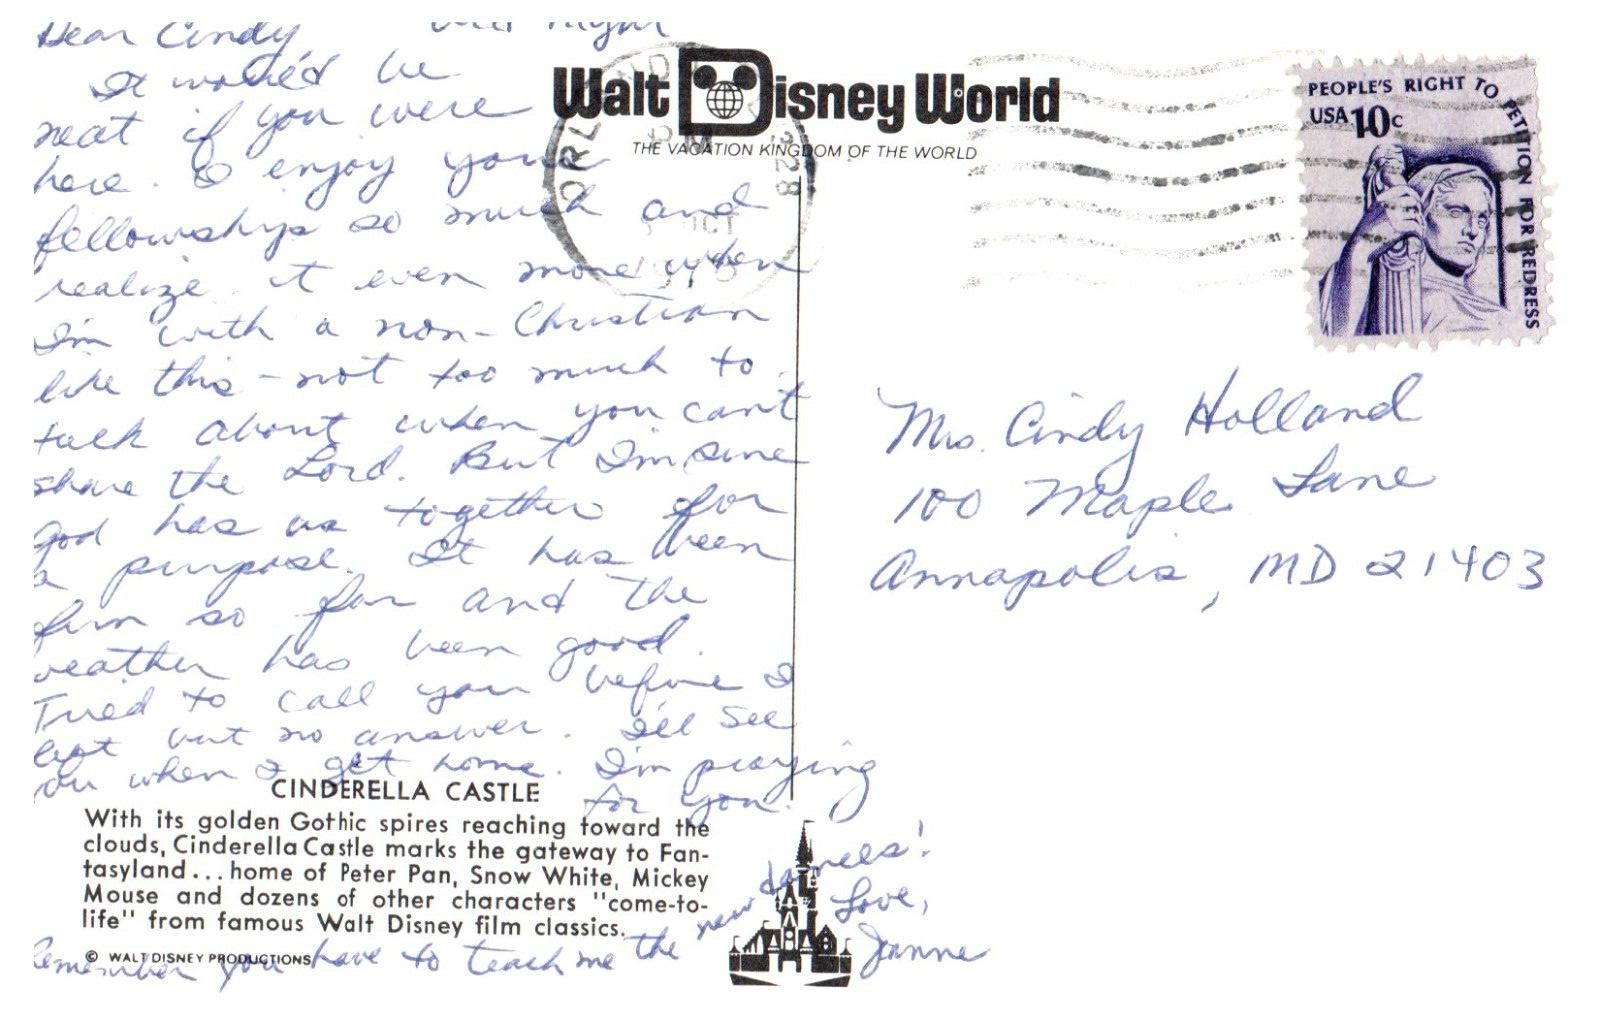 Dear Cindy,
It would be
neat if you were
here. I enjoy your
fellowship so much and
realize it even more when
I'm with a non-Christian
like this - not too much to
talk about when you can't
share the Lord. But I'm sure
God has us together for
a purpose. It has been
fun so far and the
weather has been good.
Tried to call you before I
left but no answer. I'll see
you when I get home. I'm praying
for you.
Remember you have to teach me the new dances!
Love,
Jeanne
CINDERELLA CASTLE
With its golden Gothic spires reaching toward the
clouds, Cinderella Castle marks the gateway to Fan-
tasyland... home of Peter Pan, Snow White, Mickey
Mouse and dozens of other characters "come-to-
life" from famous Walt Disney film classics.
© WALT DISNEY PRODUCTIONS
Walt Disney World
THE VACATION KINGDOM OF THE WORLD
ORL
328
PM
OCT
PEOPLE'S RIGHT TO PETITION FOR REDRESS
USA 10c
Mrs. Cindy Holland
100 Maple Lane
Annapolis, MD 21403